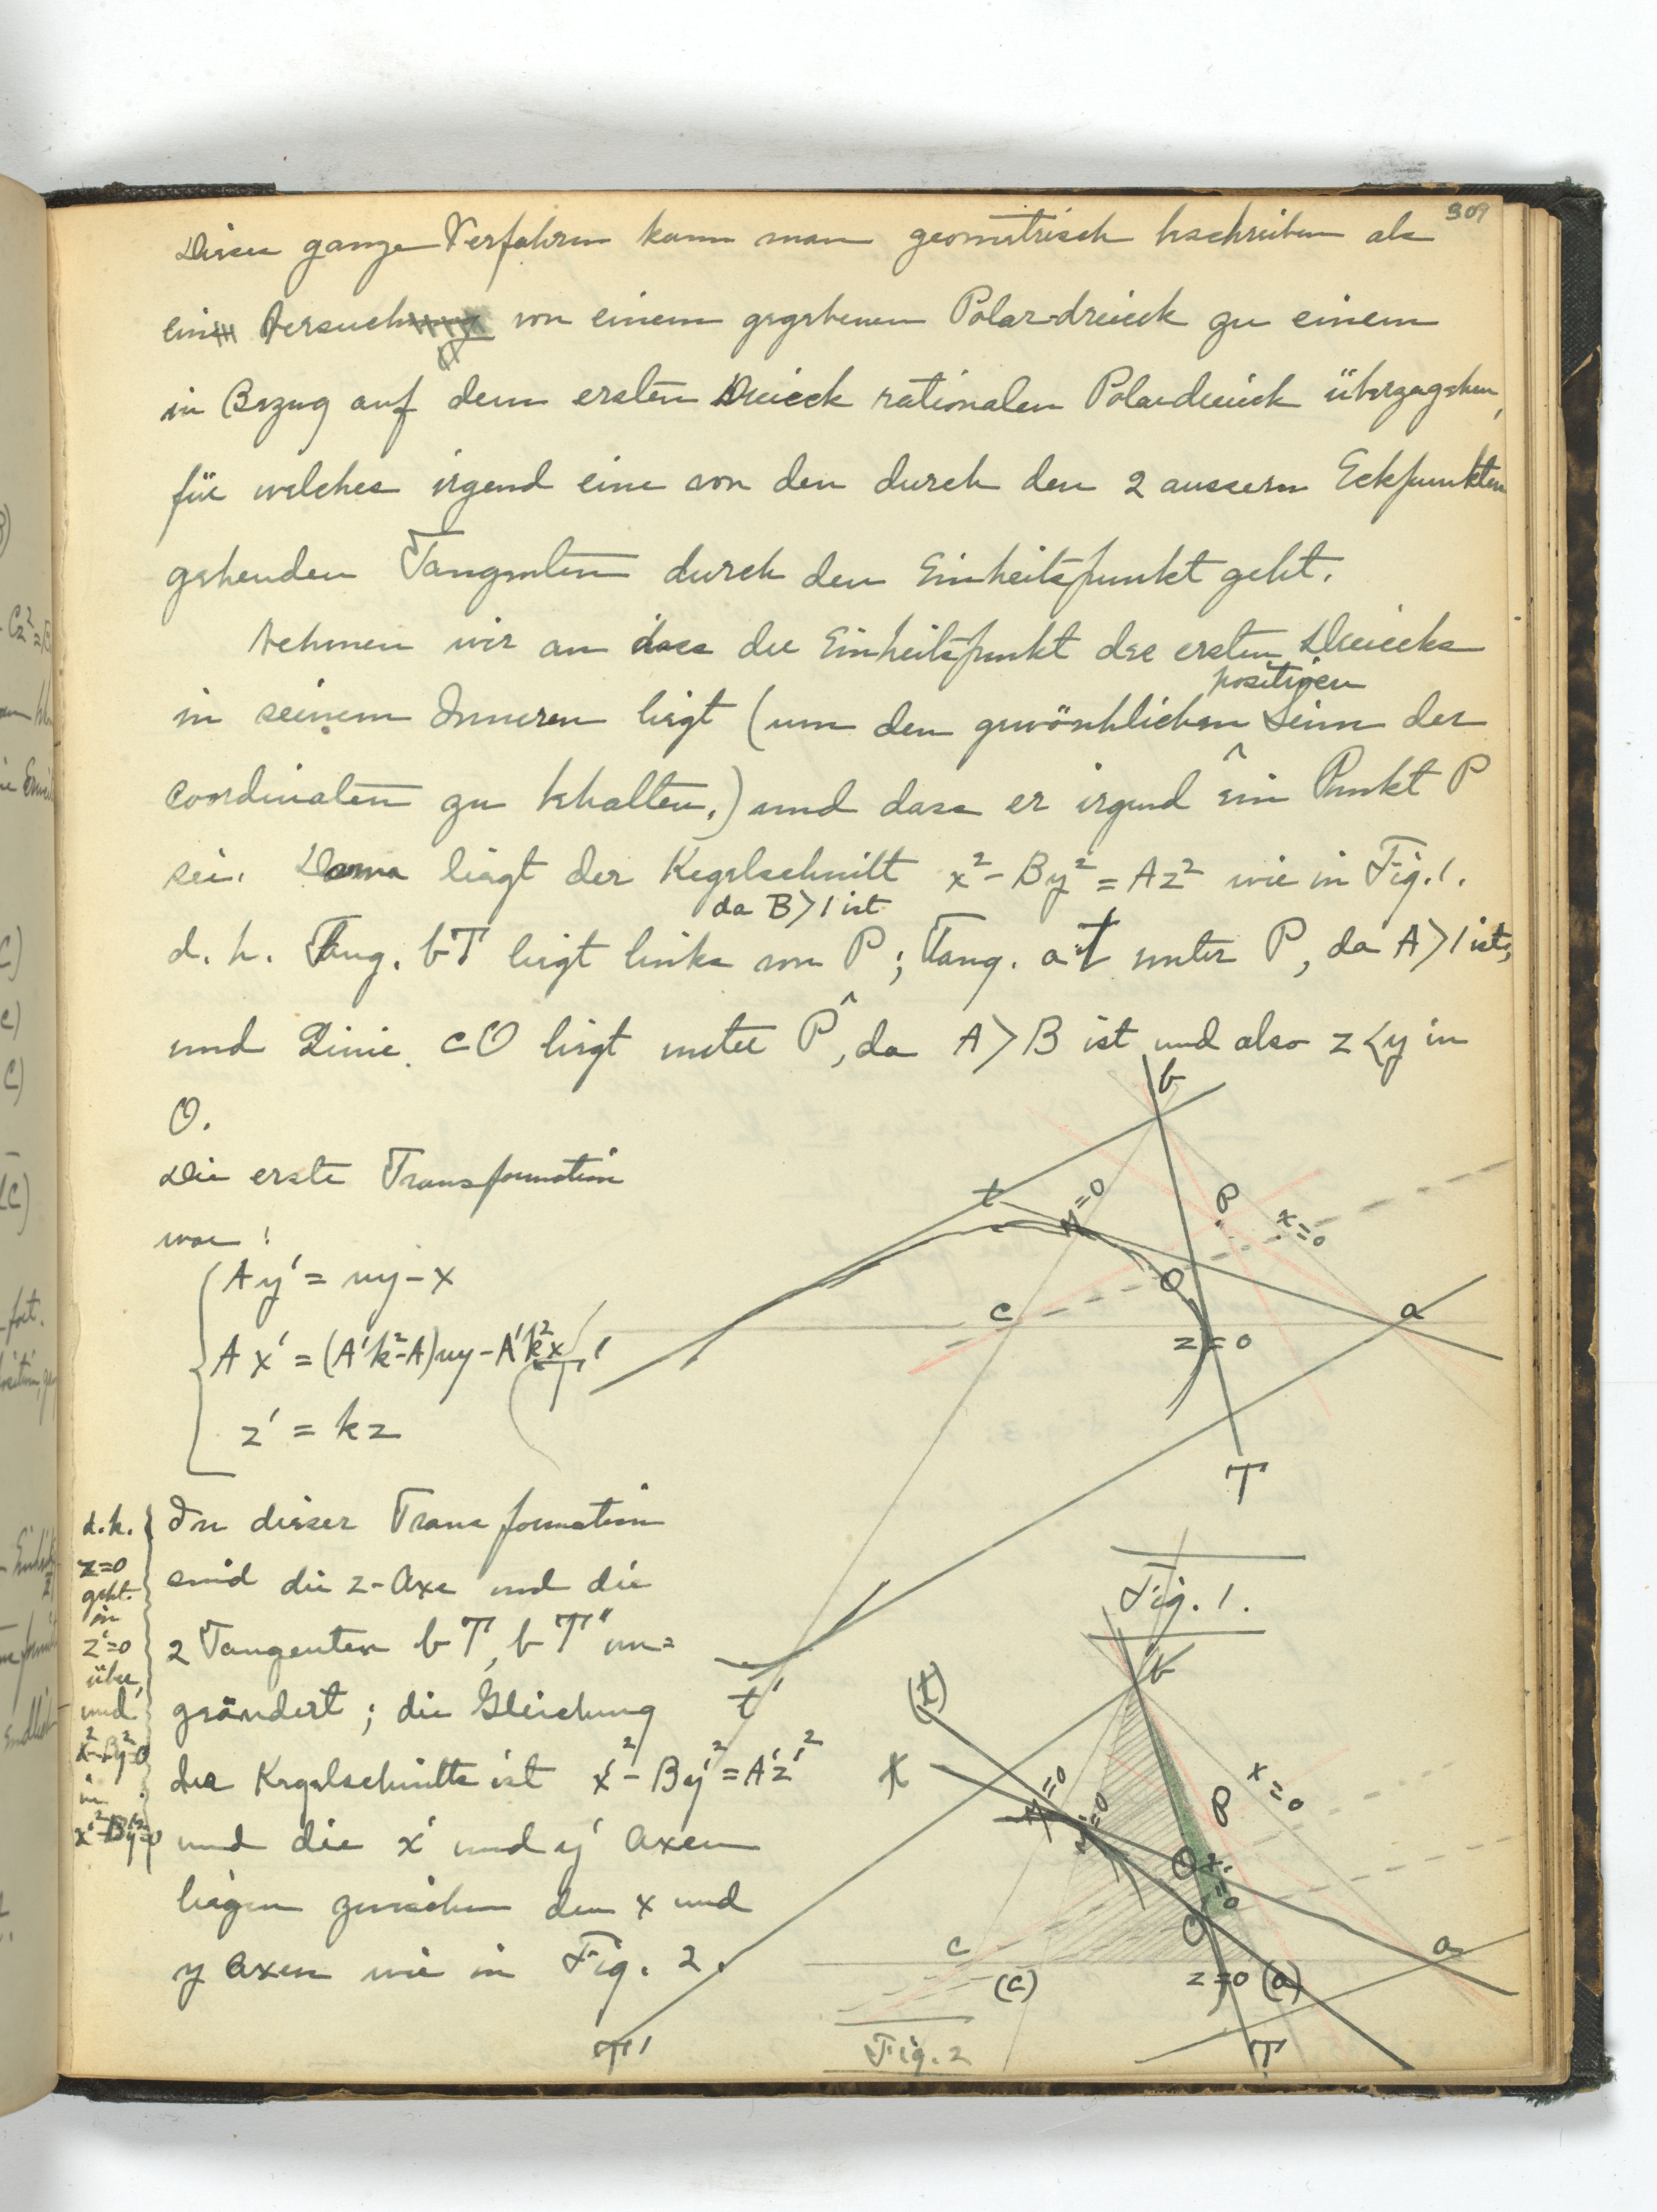 309
Dieses ganze Verfahren kann man geometrisch beschreiben als
ein Versuch von einem gegebenen Polardreieck zu einem
in Bezug auf dem ersten Dreieck rationalen Polardreieck überzugehen,
für welches irgend eine von den durch den 2 aussern Eckpunkten
gehenden Tangenten durch den Einheitspunkt geht.
Nehmen wir an dass der Einheitspunkt des ersten Dreiecks
positiven
in seinem Inneren liegt (um den gewöhnlichen Sinn der
Coordinaten zu behalten.) und dass er irgend ein Punkt P
sei. Dann liegt der Kegelschnitt x² - By² = Az² wie in Fig. 1.
da B>1 ist
d. h. Tang. bT liegt links von P; Tang. at unter P, da A>1 ist;
und Linie cO liegt unter P, da A>B ist und also z<y in
O.
Die erste Transformation
war:
Ay' = uy - x
Ax' = (A'k² - A)uy - A'k²x
z' = kz
In dieser Transformation
sind die z-Axe und die
2 Tangenten bT, bT' un=
geändert; die Gleichung
des Kegelschnitts ist x'² - By'² = A'z'²
und die x' und y' Axen
liegen zwischen den x und
y Axen wie in Fig. 2.
d.h.
z=0
geht
in
z'=0
über,
und
x²-By²=0
in
x'²-By'²=0
b
t
=0
P
x=0
c
O
a
z=0
T
T'
t'
Fig. 1.
b
(t)
t
=0
=0
P
x=0
O
x=0
O
c
(c)
z=0
(a)
a
T
T'
Fig. 2